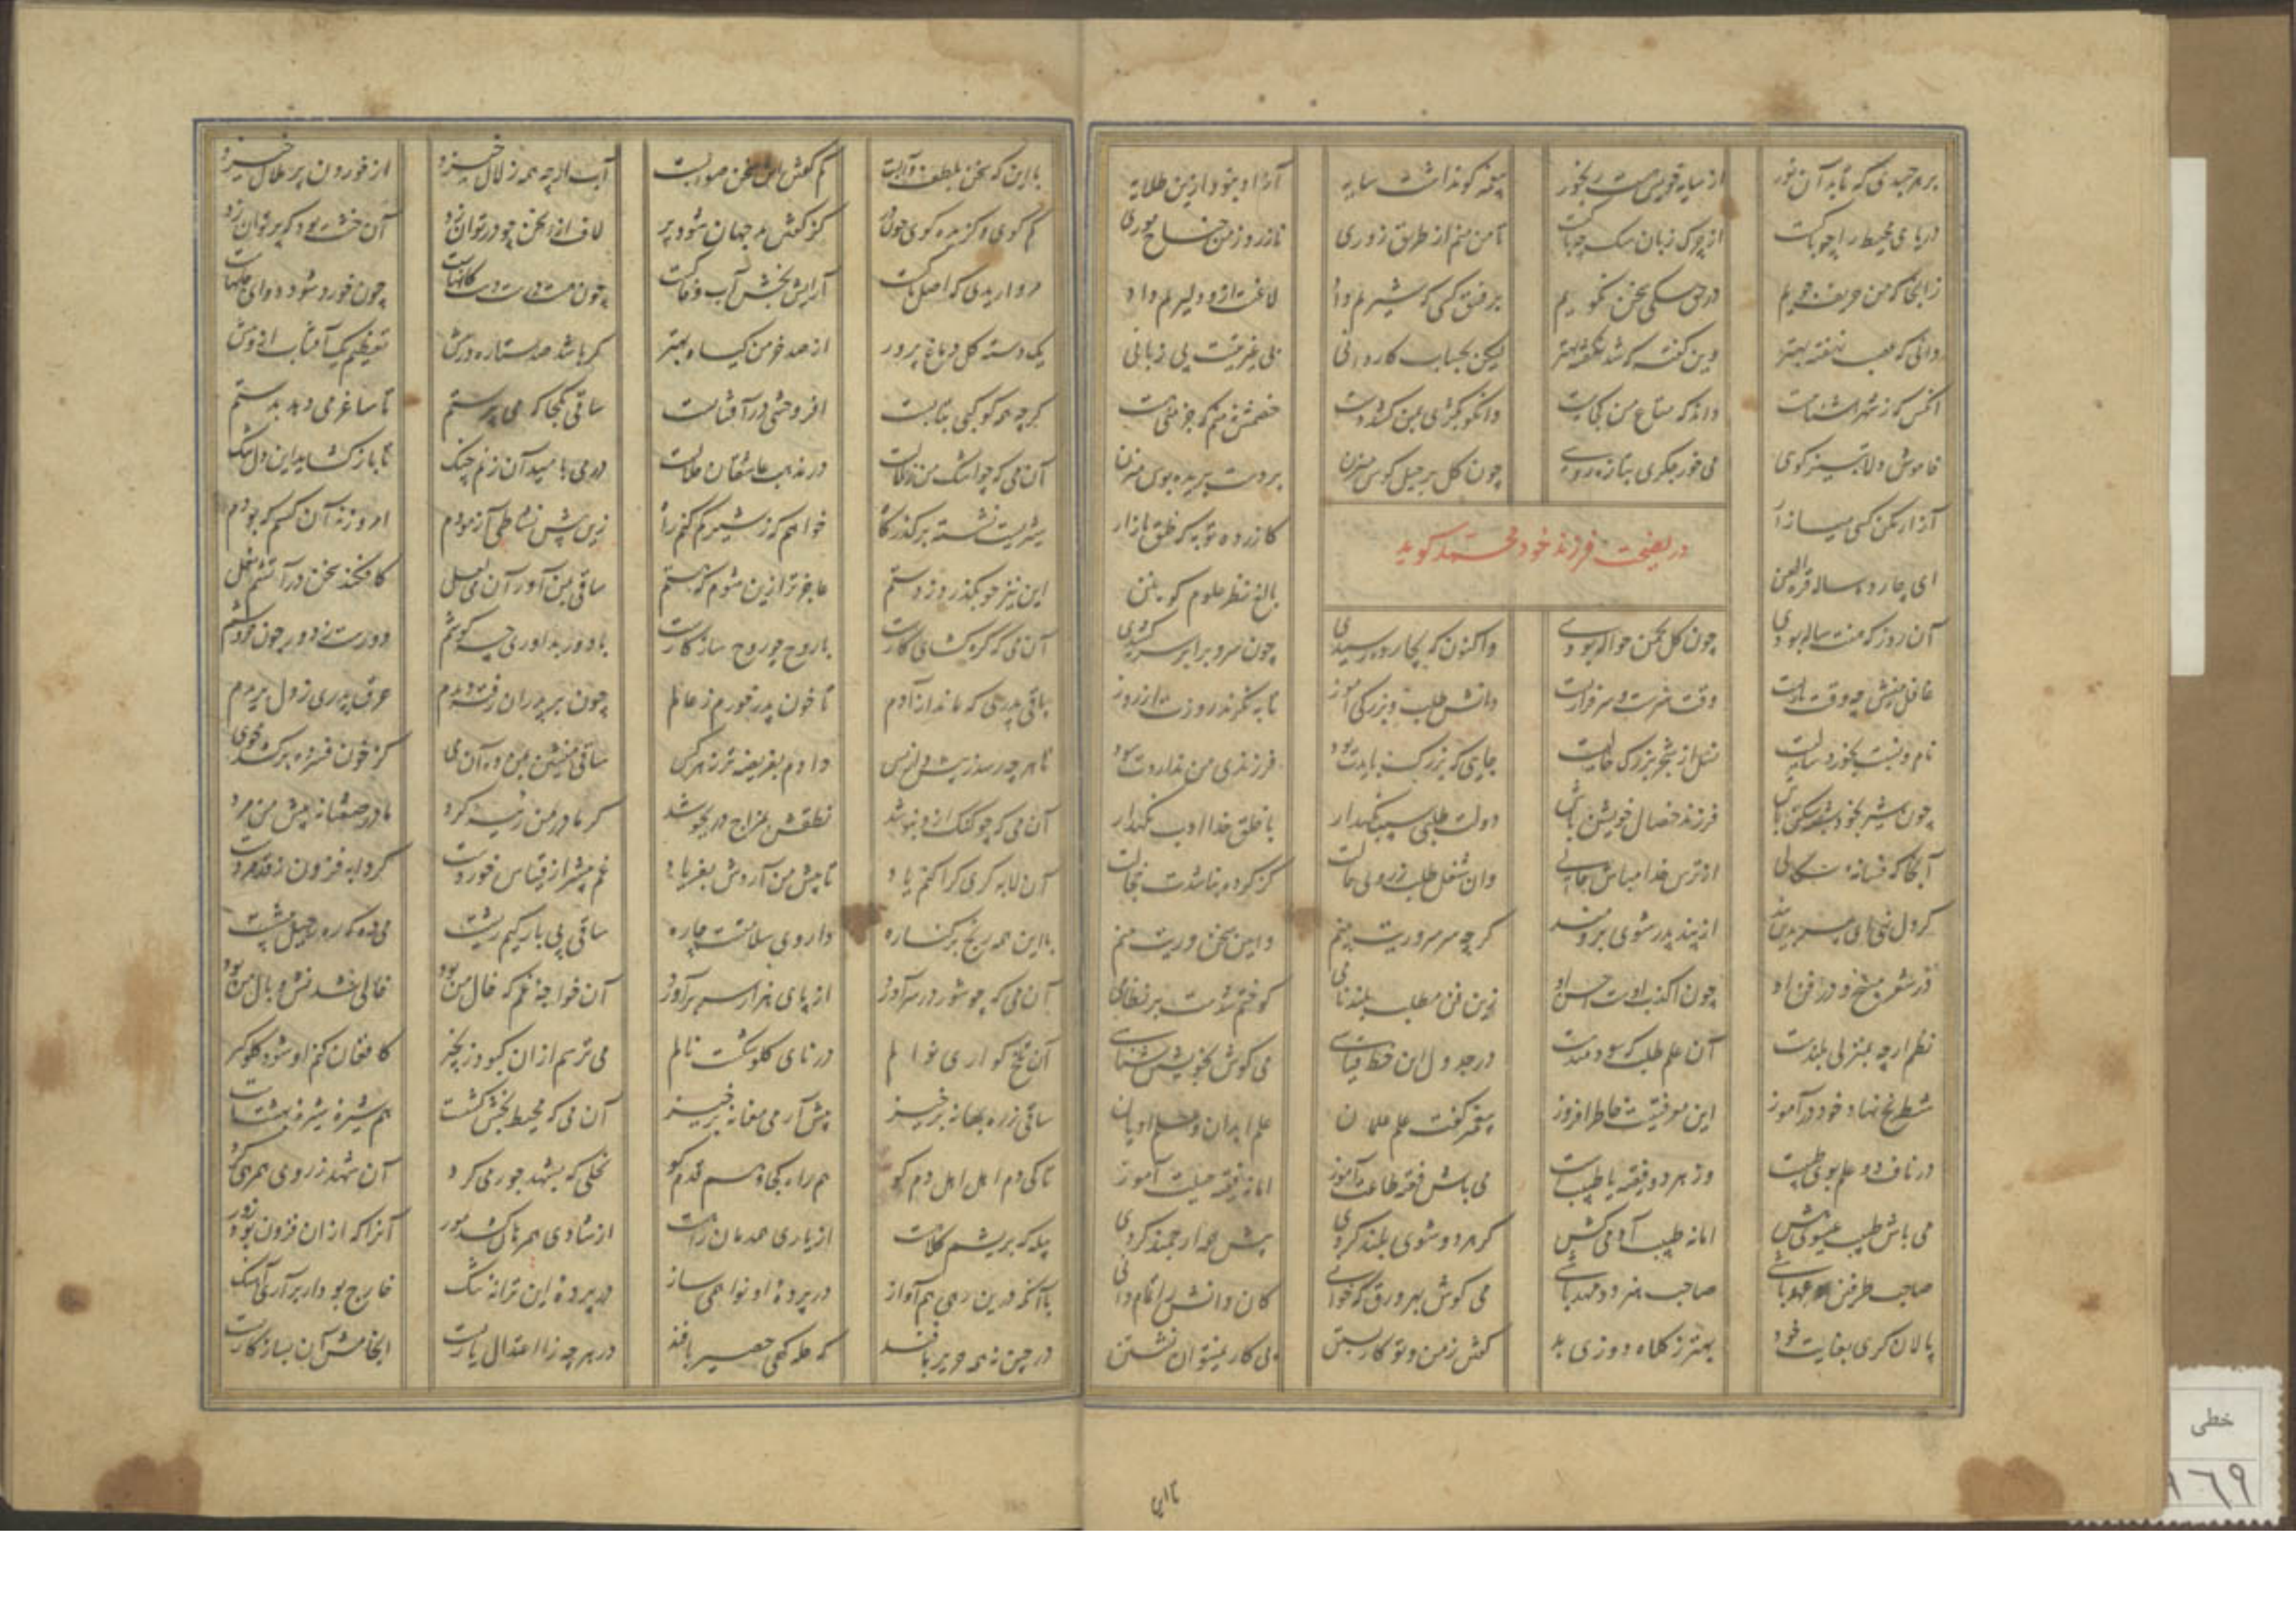 بر هر جسدی که تابد آن نور از سایه خویش هست رنجور پیغمبر کو نداشت سایه آزاد نبود ازین طلایه
دریای محیط را چو پاکست از چرک زبان سگ چه باکست تا من منم از طریق زوری نازرد ز من جناح موری
زانجا که من حریف جویم در حق سگی سخن نگویم بر فسق کسی که شیریم داد لاغست ازو دلیریم داد
دانی که غضب نهفته بهتر وین گفته که شد نگفته بهتر لیکن بحساب کاردانی بی غیرتیست بی زبانی
آنکس که ز شهر آشناییست داند که متاع من کجاییست وانکو بکژی بمن کشد دست خصمش نه منم که جز منی هست
خاموش دلا به تیز گویی می خور جگری بتازه رویی چون گل برحیل کوس میزن بر دست بریده بوس میزن
کازرده تو به که خلق بازار
در نصیحت فرزند خود محمد گوید
ای چارده ساله قرة العین بالغ نظر علوم کونین
آن روز که هفت ساله بودی چون گل بچمن حواله بودی واکنون که بچارده رسیدی چون سرو برابر سر کشیدی
غافل منشین نه وقت بازیست وقت هنرست و سرفرازیست دانش طلب و بزرگی آموز تا به نگرند روزت از روز
نام و نسبت بخورد سالیست نسل از شجر بزرگ خالیست جایی که بزرگ بایدت بود فرزندی من نداردت سود
چون شیر بخود سپه شکن باش فرزند خصال خویشتن باش دولت طلبی سبب نگهدار با خلق خدا ادب نگهدار
آنجا که فسانه سگالی از ترس خدا مباش خالی وان شغل طلب ز روی حالت کز کرده نباشدت خجالت
گر دل نهی ای پسر بدین پند از پند پدر شوی برومند گرچه سر سروریت بینم وایین سخن وریت بینم
در شعر مپیچ و در فن او چون اکذب اوست احسن او زین فن مطلب بلند نامی کو ختم شدست بر نظامی
نظم ارچه بمنزلی بلندست آن علم طلب که سودمندست در جدول این خط قیاسی می کوش بخویشتن شناسی
تشریح نهاد خود درآموز این معرفتیست خاطر افروز پیغمبر گفت علم علمان علم ابدان و علم ادیان
در ناف دو علم بوی طیبست وز هر دو فقیه یا طبیبست می باش فقیه طاعت آموز اما نه فقیه حیلت آموز
می باش طبیب عیسوی هش اما نه طبیب آدمی کش گر هر دو شوی بلند گردی پیش همه ارجمند گردی
صاحب طرفین عهد باشی صاحب هنر دو مهد باشی می کوش بهر ورق که خوانی کان دانش را تمام دانی
پالان گری بغایت خود بهتر ز کلاه دوزی بد گفتن ز من و تو کار بستن بی کار نمیتوان نشستن
با این که سخن بلطف آبست کم گفتن این سخن صوابست آب ارچه همه زلال خیزد از خوردن پر ملال خیزد
کم گوی و گزیده گوی چون در کز گفتن تو جهان شود پر لاف از سخن چو در توان زد آن خشت بود که پر توان زد
مرواریدی که اصل پاکست آرایش بخش آب و خاکست چون هست درست کانهاست چون خورد شود دوای جانهاست
یک دسته گل دماغ پرور از صد خرمن گیاه بهتر گر باشد صد ستاره در پیش تعظیم یک آفتاب ازو بیش
گرچه همه کوکبی بتابست افروختگی در آفتابست ساقی بکجا که می پرستم تا ساغر می دهد بدستم
آن می که چو اشک من زلالست در مذهب عاشقان حلالست در می بامید آن زنم چنگ تا باز گشاید این دل تنگ
شیریست نشسته بر گذرگاه خواهم که ز شیر گم کنم راه زین پیش نشاطی آزمودم امروز نه آن کسم که بودم
این نیز چو بگذرد ز دستم عاجزتر ازین شوم که هستم ساقی بمن آور آن می لعل کافکند سخن در آتشم نعل
آن می که گره گشای کارست با روح چو روح سازگارست
باقی پدری که ماند از آدم تا خون پدر خورم ز عالم چون بر پدران رفته دیدم عرق پدری ز دل بریدم
تا هر چه رسد ز نیش و نوش دارم بفریضه تن ساقی منشین بمن ده آن می کز خون فسرده برکشد خوی
آن می که چو گنگ ازو بنوشد نطقش بمزاج در بجوشد گر مادر من رئیسه کرد مادر صفتانه پیش من مرد
آن لابه گری کرا کنم یاد تا پیش من آردش بفریاد غم بیشتر از قیاس خوردست گردابه فزون ز قد مردست
با این همه رنج بر کناره داروی سلامتست چاره ساقی پی بارگیم ریشت می ده که ره رحیل پیشست
آن می که چو شور در سر آورد از پای هزار سر برآورد آن خواجه عمر که خال من بود خالی شدنش وبال من بود
آن تلخ گواری نوالم در نای گلو شکست نالم می ترسم ازان کبود زنجیر کافغان کنم او شود گلوگیر
ساقی ز ره بهانه برخیز پیش آر می مغانه برخیز آن می که محیط بخش کشتست هم شیره شیرۀ بهشتست
تا کی دم اهل اهل دم کو همراه کجا و هم قدم کو نحلی که بشهد جوری کرد آن شهد ز روی همرهی کرد
پیله که بریشمین کلاهست از یاری همدمان راهست از شادی همرهان کشد مور آنرا که ازان فزون بود زور
با آنکه درین رهی هم آواز در پرده او نوا همی ساز در پرده این ترانه تنگ خارج بود ار برآری آهنگ
در چین نه همه حریر بافند گه حله گهی حصیر بافند در هر چه ز اعتدال یاریست انجامش آن بسازگاریست
خطی